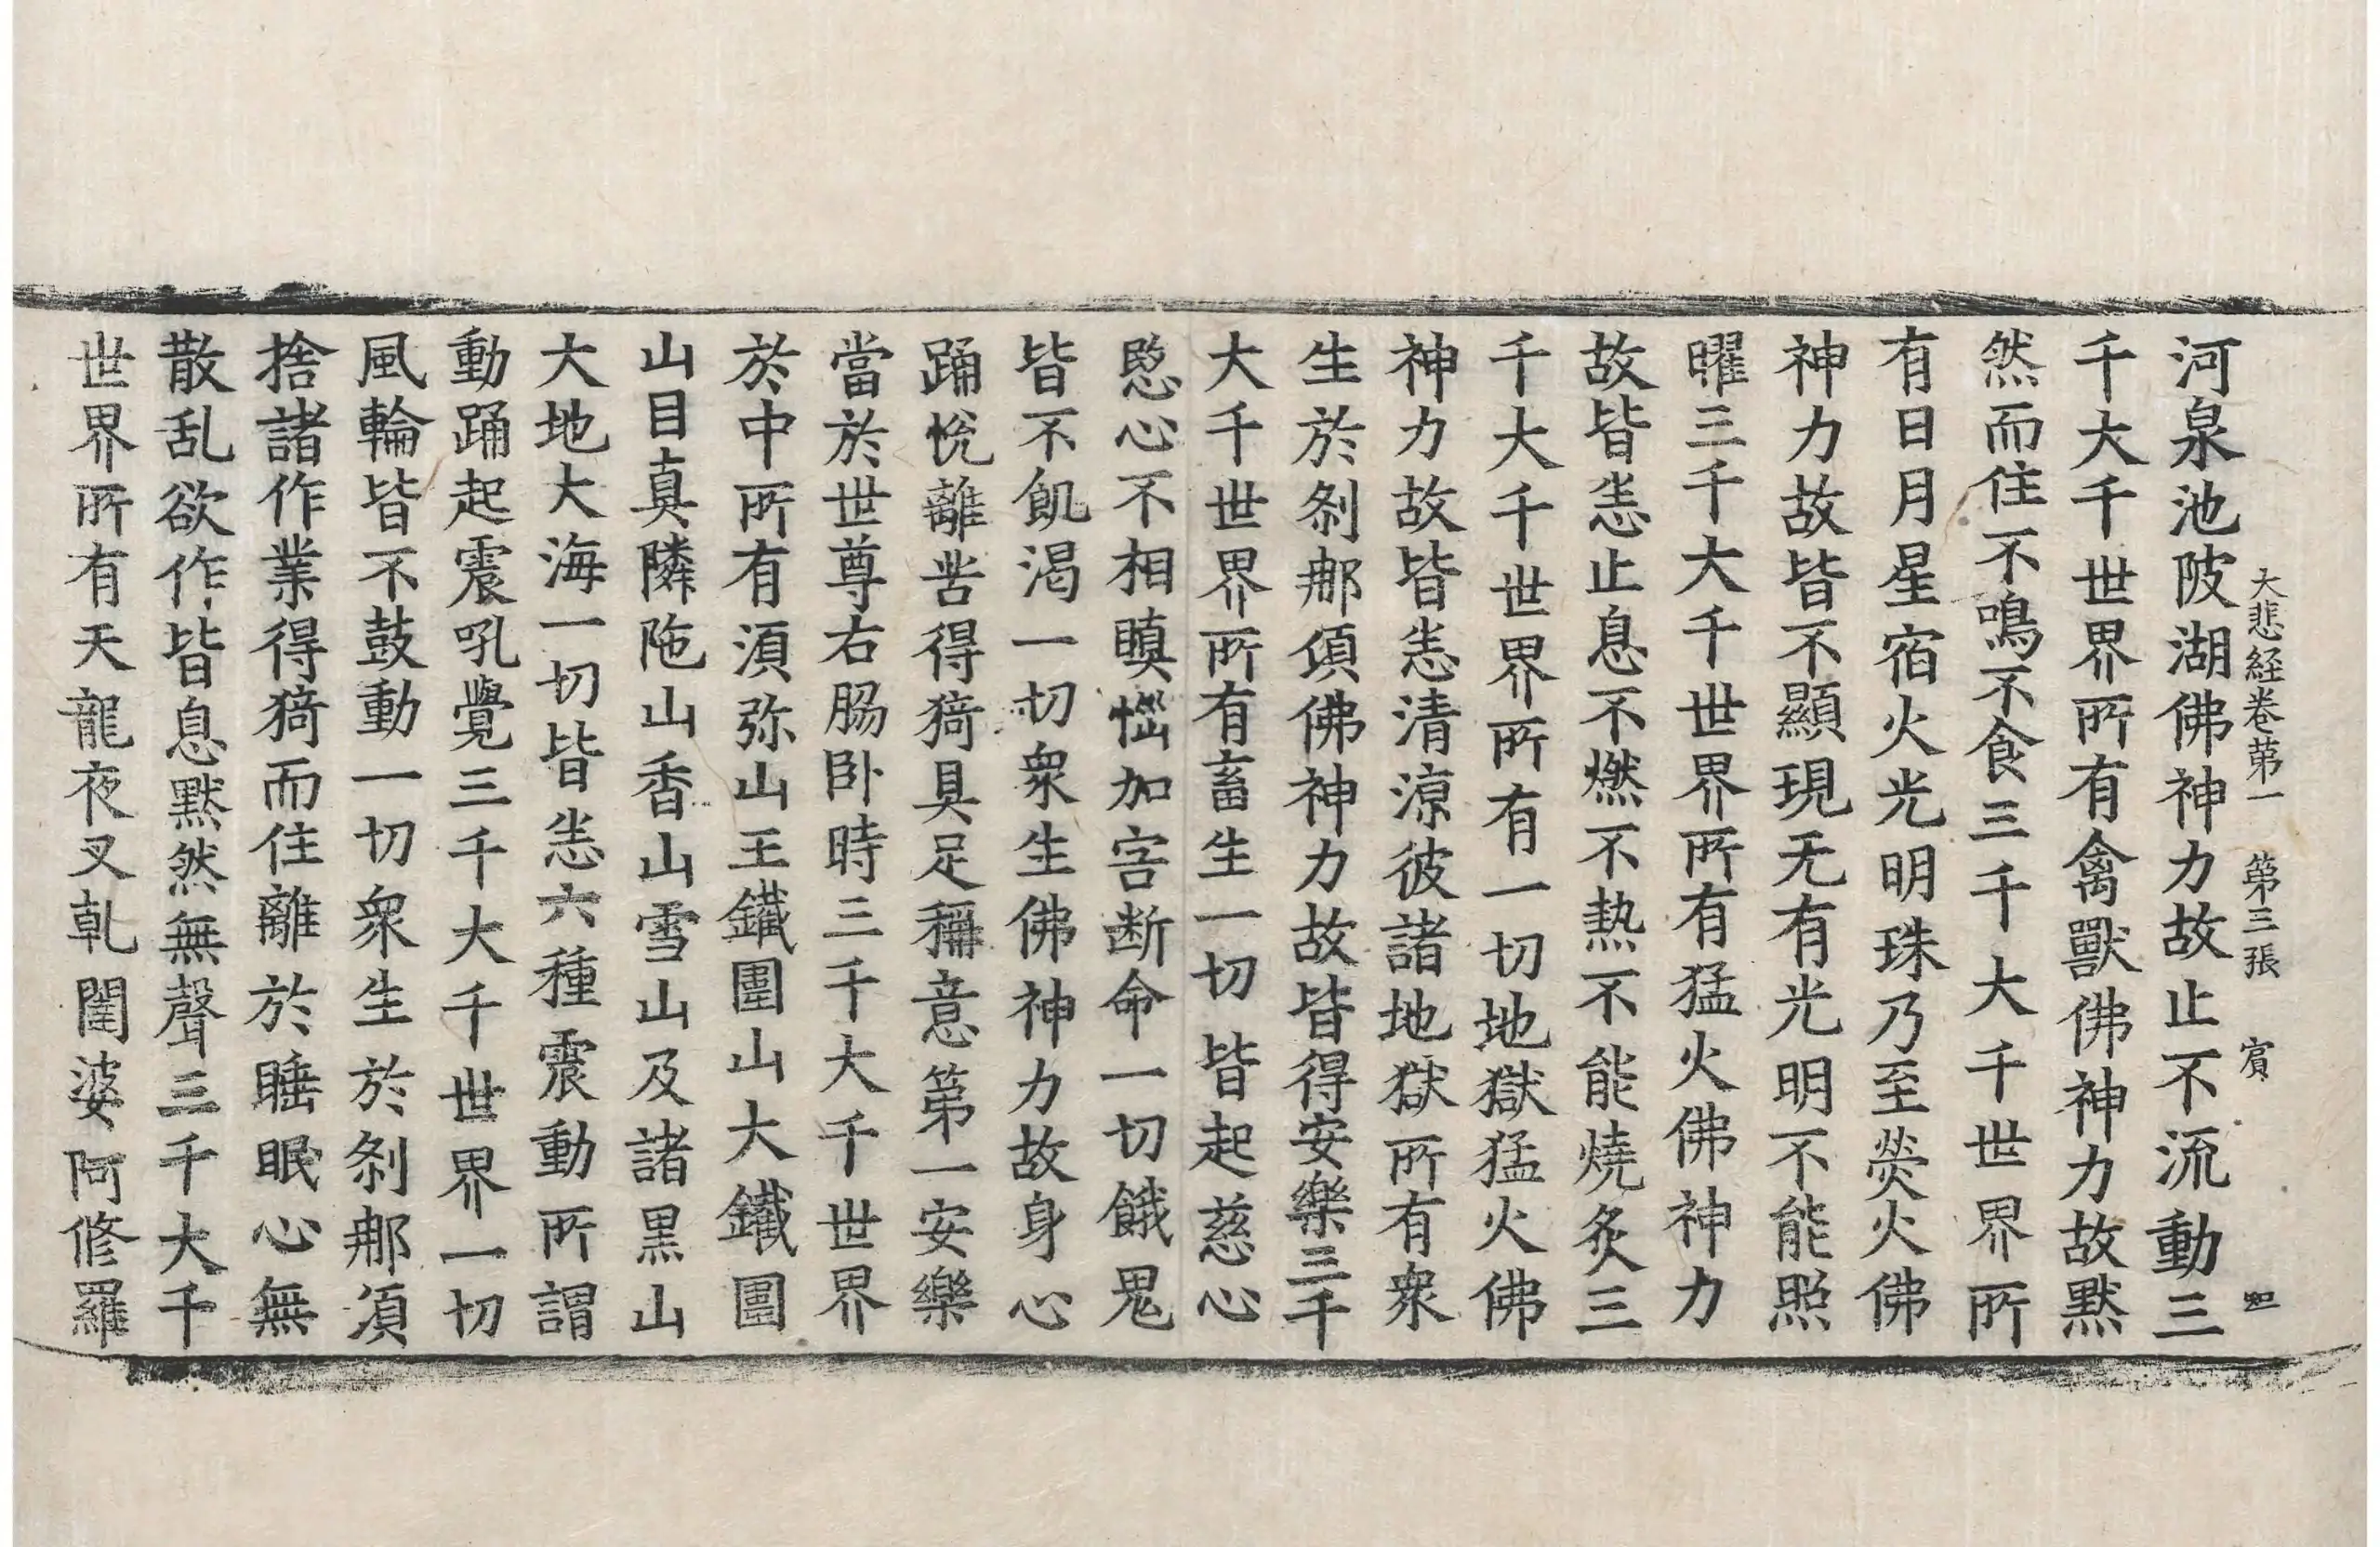 大悲経卷苐一 第三張 賔
河泉池陂湖佛神力故止不流動三
千大千世界所有禽獸佛神力故黙
然而住不鳴不食三千大千世界所
有日月星宿火光明珠乃至熒火佛
神力故皆不顯現无有光明不能照
曜三千大千世界所有猛火佛神力
故皆恙止息不燃不熱不能燒炙三
千大千世界所有一切地獄猛火佛
神力故皆恙清涼彼諸地獄所有衆
生於刹那湏佛神力故皆得安樂三千
大千世界所有畜生一切皆起慈心
愍心不相瞋惱加害断命一切餓鬼
皆不飢渴一切衆生佛神力故身心
踊悅離苦得猗具足稱意第一安樂
當於世尊右脇卧時三千大千世界
於中所有湏弥山王鐵圍山大鐵圍
山目真隣陁山香山雪山及諸黒山
大地大海一切皆恙六種震動所謂
動踊起震吼覺三千大千世界一切
風輪皆不鼓動一切衆生於刹那湏
捨諸作業得猗而住離於睡眠心無
散乱欲作皆息黙然無聲三千大千
世界所有天龍夜叉乹闥婆阿修羅